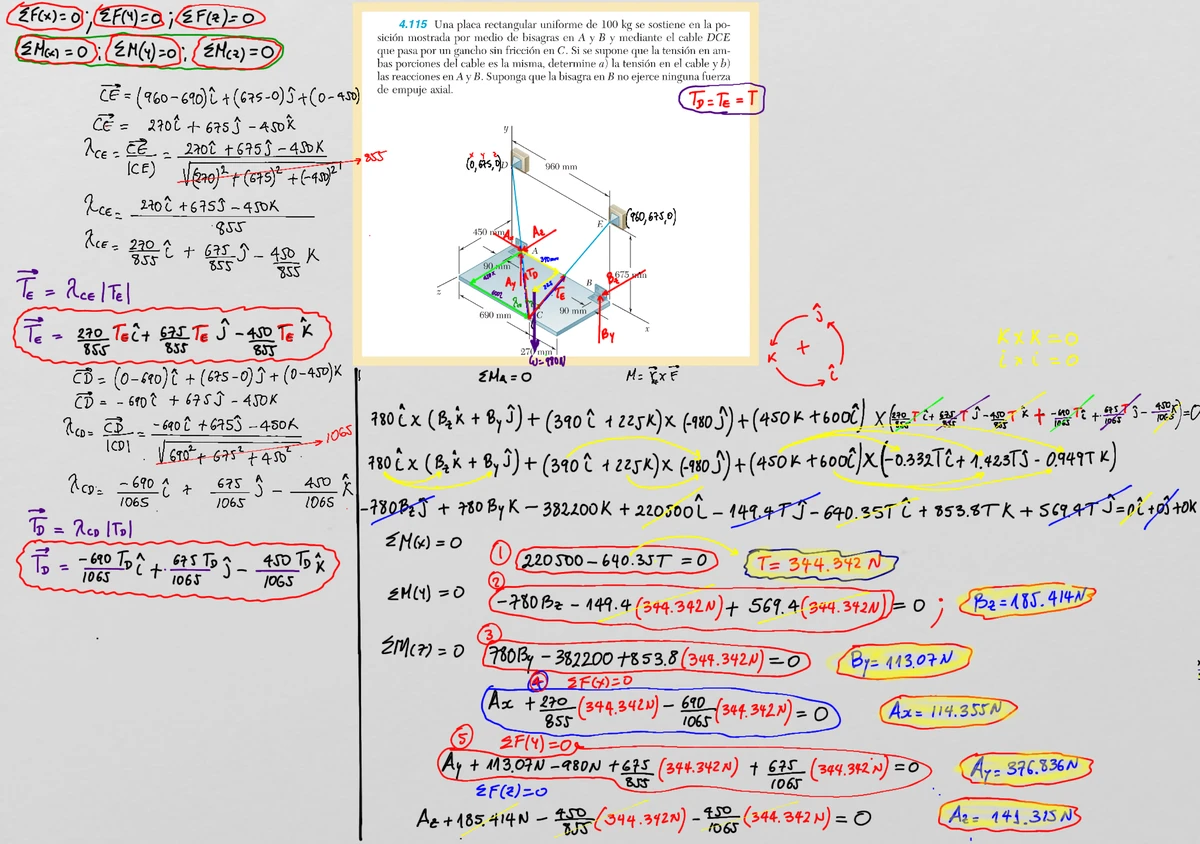 ΣF(x)=0 ; ΣF(y)=0 ; ΣF(z)=0
ΣM(x)=0 ; ΣM(y)=0 ; ΣM(z)=0
CE = (960-690)î + (675-0)ĵ + (0-450)
CE = 270î + 675ĵ - 450k̂
λCE = CE/|CE| = (270î + 675ĵ - 450K)/√((270)² + (675)² + (-450)²) → 855
λCE = (270î + 675ĵ - 450K)/855
λCE = 270/855 î + 675/855 ĵ - 450/855 K
TE = λCE |TE|
TE = 270/855 TE î + 675/855 TE ĵ - 450/855 TE k̂
CD = (0-690)î + (675-0)ĵ + (0-450)K
CD = -690î + 675ĵ - 450K
λCD = CD/|CD| = (-690î + 675ĵ - 450K)/√(690² + 675² + 450²) → 1065
λCD = -690/1065 î + 675/1065 ĵ - 450/1065 k̂
TD = λCD |TD|
TD = -690 TD/1065 î + 675 TD/1065 ĵ - 450 TD/1065 k̂
4.115 Una placa rectangular uniforme de 100 kg se sostiene en la po-
sición mostrada por medio de bisagras en A y B y mediante el cable DCE
que pasa por un gancho sin fricción en C. Si se supone que la tensión en am-
bas porciones del cable es la misma, determine a) la tensión en el cable y b)
las reacciones en A y B. Suponga que la bisagra en B no ejerce ninguna fuerza
de empuje axial.
TD = TE = T
y
x y z
(0,675,0) D
960 mm
E (960,675,0)
450 mm
Ax
Az
A
390mm
90 mm
Ay
TD
TE
225
B
Bz
675 mm
450K
600î
z
690 mm
C
90 mm
By
x
270 mm
W=980N
ΣMa = 0
M = r x F
ĵ
K
+
î
K x K = 0
î x î = 0
780î x (Bz k̂ + By ĵ) + (390î + 225K) x (-980ĵ) + (450K + 600î) x (270/855 Tî + 675/855 Tĵ - 450/855 Tk + -690/1065 Tî + 675/1065 Tĵ - 450/1065) = 0
780î x (Bz k̂ + By ĵ) + (390î + 225K) x (-980ĵ) + (450K + 600î) x (-0.332Tî + 1.423Tĵ - 0.949TK)
-780Bzĵ + 780ByK - 382200K + 220500î - 149.4Tĵ - 640.35Tî + 853.8TK + 569.4Tĵ = 0î + 0ĵ + 0K
ΣM(x) = 0
① 220500 - 640.35T = 0
T = 344.342 N
ΣM(y) = 0
② -780Bz - 149.4(344.342N) + 569.4(344.342N) = 0 ; Bz = 185.414N
ΣM(z) = 0
③ 780By - 382200 + 853.8(344.342N) = 0
By = 113.07N
④ ΣF(x)=0
Ax + 270/855 (344.342N) - 690/1065 (344.342N) = 0
Ax = 114.355N
⑤ ΣF(y)=0
Ay + 113.07N - 980N + 675/855 (344.342N) + 675/1065 (344.342N) = 0
Ay = 376.836N
ΣF(z)=0
Az + 185.414N - 450/855 (344.342N) - 450/1065 (344.342N) = 0
Az = 141.315N